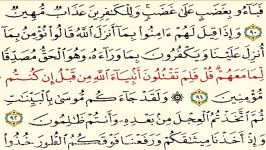 فَبَآءُو بِغَضَبٍ عَلَىٰ غَضَبٍ ۚ وَلِلْكَٰفِرِينَ عَذَابٌ مُّهِينٌ
۝٩٠ وَإِذَا قِيلَ لَهُمْ ءَامِنُوا۟ بِمَآ أَنزَلَ ٱللَّهُ قَالُوا۟ نُؤْمِنُ بِمَآ
أُنزِلَ عَلَيْنَا وَيَكْفُرُونَ بِمَا وَرَآءَهُۥ وَهُوَ ٱلْحَقُّ مُصَدِّقًا
لِّمَا مَعَهُمْ ۗ قُلْ فَلِمَ تَقْتُلُونَ أَنۢبِيَآءَ ٱللَّهِ مِن قَبْلُ إِن كُنتُم
مُّؤْمِنِينَ ۝٩١ ۞ وَلَقَدْ جَآءَكُم مُّوسَىٰ بِٱلْبَيِّنَٰتِ
ثُمَّ ٱتَّخَذْتُمُ ٱلْعِجْلَ مِنۢ بَعْدِهِۦ وَأَنتُمْ ظَٰلِمُونَ ۝٩٢
وَإِذْ أَخَذْنَا مِيثَٰقَكُمْ وَرَفَعْنَا فَوْقَكُمُ ٱلطُّورَ خُذُوا۟